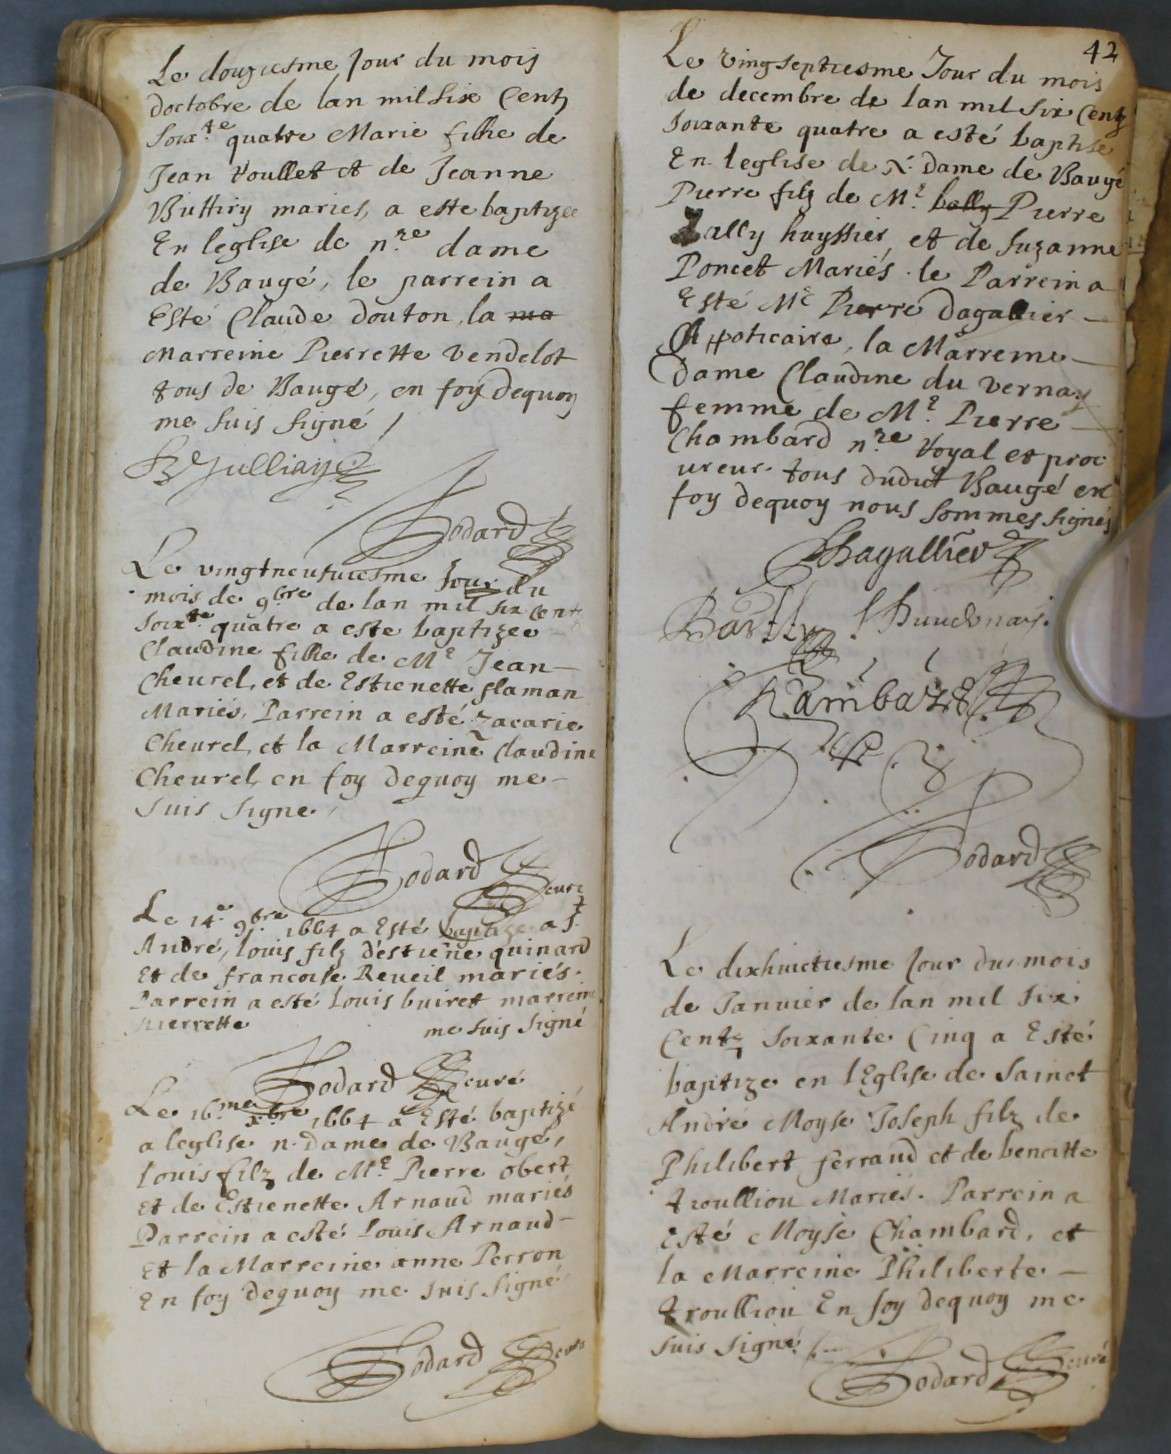 Le douziesme Jour du mois
doctobre de lan mil Six Centz
Soix.te quatre Marie fille de
Jean et de Jeanne
maries, a este baptizee
En leglise de n.re dame
de Baugé, le parrein a
Esté Claude douton, la ma
Marreine Pierrette Vendelot
tous de Baugé, en foy dequoy
me suis signé
Bodard
Le vingtneufuiesme Jour du
mois de 9bre de lan mil six cent
Soix.te quatre a este baptizee
Claudine fille de M.e Jean
Cheurel, et de Estienette flaman
Mariés, Parrein a esté Zacarie
Cheurel, et la Marreine Claudine
Cheurel, en foy dequoy me
suis signe
Bodard curé
Le 14.e 9bre 1664 a Esté baptize a S.t
André, louis filz d'estiene quinard
Et de francoise Reueil mariés.
Parrein a esté Louis buiret marreine
Pierrette me suis signé
Bodard curé
Le 16.me xbre 1664 a Esté baptizé
a leglise n. Dame de Baugé,
Louis filz de M.e Pierre obert
Et de Estienette Arnaud mariés
Parrein a esté Louis Arnaud
Et la Marreine anne Perron
En foy dequoy me suis signé
Bodard curé
42
Le vingseptiesme Jour du mois
de decembre de lan mil six Centz
soixante quatre a esté baptisé
En leglise de N. Dame de Baugé
Pierre filz de M.e bally Pierre
huyssier, et de Suzanne
Poncet Mariés. le Parrein a
Esté M.e Pierre dagallier
Appoticaire, la Marreine
Dame Claudine du vernay
femme de M.e Pierre
Chambard n.re Royal et proc
ureur tous dudit Baugé en
foy dequoy nous sommes signés
Dagallier
Bodard
Le dixhuictiesme Jour du mois
de Januier de lan mil six
Centz soixante Cinq a Esté
baptize en lEglise de Sainct
André Moyse Joseph filz de
Philibert ferraud et de benoitte
troulliou Mariés. Parrein a
Esté Moyse Chambard, et
la Marreine Philiberte
troulliou En foy dequoy me
suis signé
Bodard curé